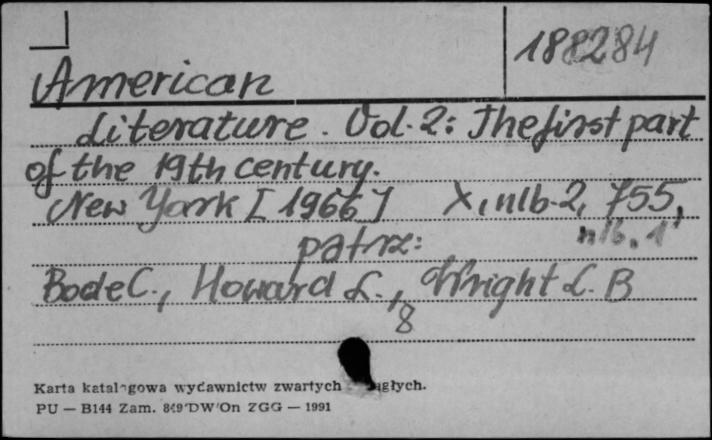 188284
American
Literature. Vol. 2: The first part
of the 19th century.
New York [1966] X, nlb. 2, 755,
nlb. 1
patrz:
Bode C., Howard L., Wright L. B
8
Karta katalogowa wydawnictw zwartych ciągłych.
PU — B144 Zam. 849/DW/On ZGG — 1991